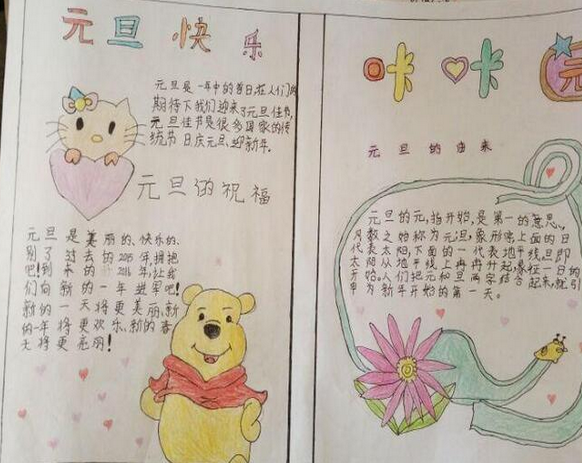 元旦快乐
元旦是一年中的首日,在人们的
期待下我们迎来了元旦佳节,
元旦佳节是很多国家的传
统节日,庆元旦,迎新年.
元旦的祝福
元旦是美丽的、快乐的、
别了过去的2015年拥抱
吧!到来的2016年,让我
们向新的一年进军吧!
新的一天将更美丽、新
的一年将更欢乐、新的春
天将更亮丽!
咔咔元
元旦的由来
元旦的元,指开始,是第一的意思。
数之始称为元旦,象形字上面的日
代表太阳,下面的一代表地平线。旦即
太阳从地平线上冉冉升起,象征一日的
开始。人们把元和旦两字结合起来,就引
申为新年开始的第一天。